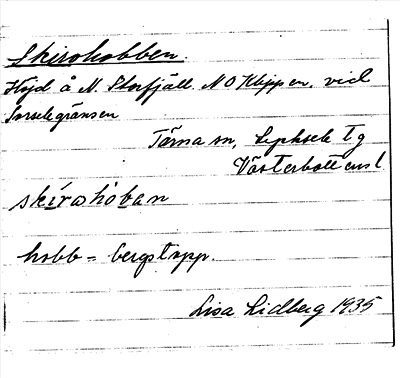 Skirohobben.
Höjd å N. Storfjäll. N O Klippen, vid
Sorselegränsen
Tärna sn, Lycksele Tg
Västerbottens l
skírahòban
hobb = bergstopp.
Lisa Lidberg 1935